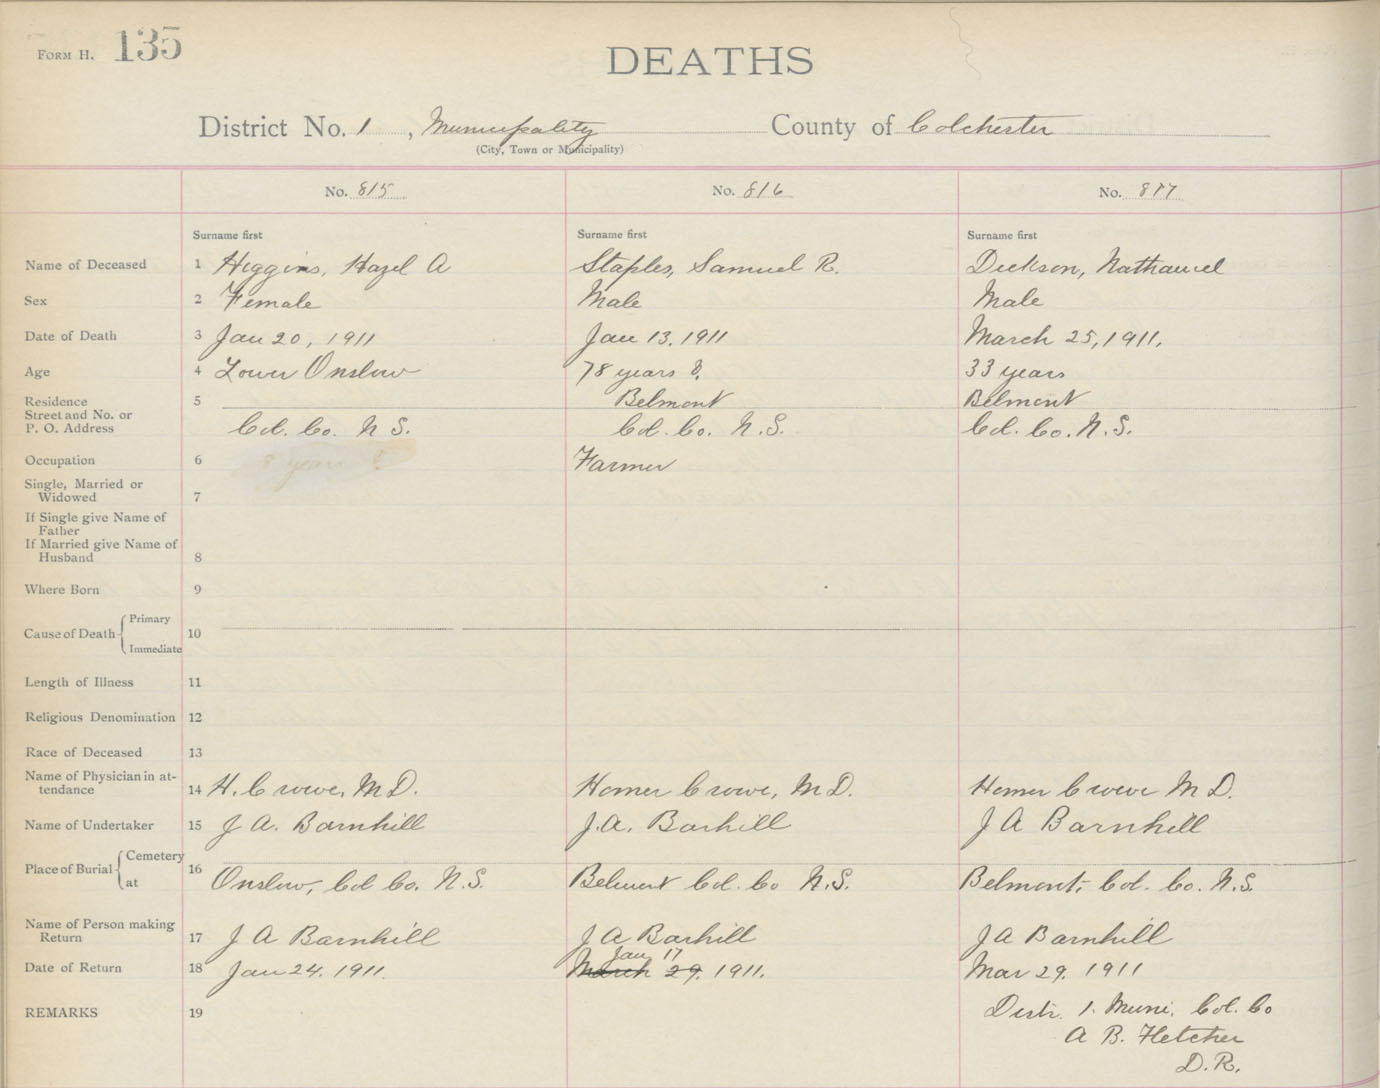 FORM H. 135
DEATHS
District No. 1, Municipality County of Colchester
(City, Town or Municipality)
No. 815 No. 816 No. 817
Surname first Surname first Surname first
Name of Deceased 1 Higgins, Hazel A Staples, Samuel R. Dickson, Nathaniel
Sex 2 Female Male Male
Date of Death 3 Jan 20, 1911 Jan 13, 1911 March 25, 1911.
Age 4 Lower Onslow 78 years 33 years
Residence 5 Belmont Belmont
Street and No. or
P. O. Address Col. Co. N S. Col. Co. N.S. Col. Co. N.S.
Occupation 6 8 years Farmer
Single, Married or
Widowed 7
If Single give Name of
Father
If Married give Name of
Husband 8
Where Born 9
Cause of Death Primary 10
Immediate
Length of Illness 11
Religious Denomination 12
Race of Deceased 13
Name of Physician in at-
tendance 14 H. Crowe, M D. Homer Crowe, M D. Homer Crowe M D.
Name of Undertaker 15 J A. Barnhill J. A. Barhill J A Barnhill
Place of Burial Cemetery 16
at Onslow, Col Co. N.S. Belmont Col. Co N.S. Belmont, Col. Co. N.S.
Name of Person making
Return 17 J A Barnhill J A Barhill J A Barnhill
Jan 17
Date of Return 18 Jan 24. 1911. March 29. 1911. Mar 29. 1911
REMARKS 19 Distr. 1. Muni. Col. Co
A B. Fletcher
D. R.